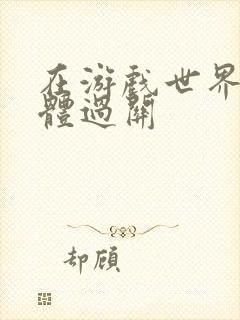 在游戏世界
體過關
却顧